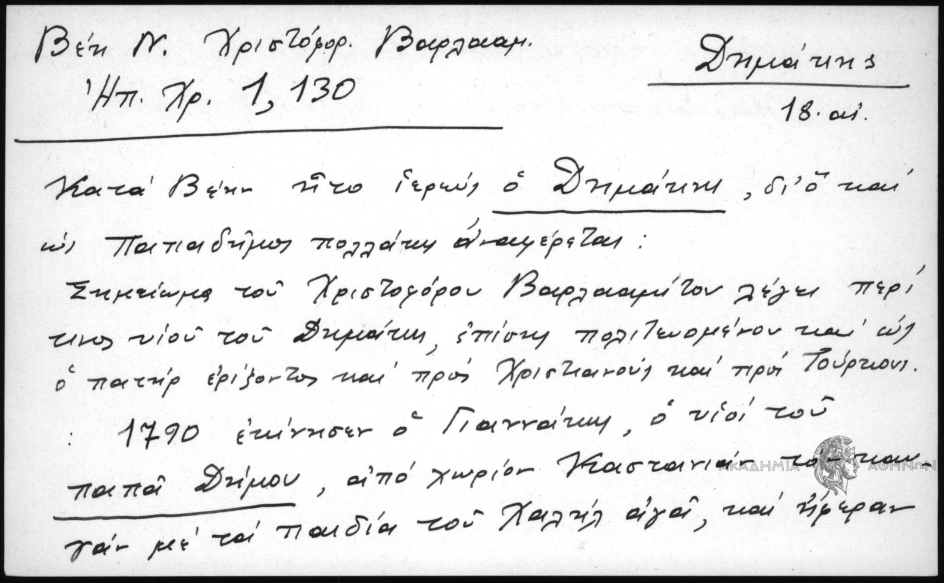 Βέη Ν. Χριστόφορ. Βαρλααμ.
Δημάκης
Ἠπ. Χρ. 1, 130
18. αἰ.
Κατά Βέην ἦτο ἱερεύς ὁ Δημάκης, δι' ὅ καί
ὡς Παπαδῆμος πολλάκις ἀναφέρεται:
Σημείωμα τοῦ Χριστοφόρου Βαρλααμίτου λέγει περί
τινος υἱοῦ τοῦ Δημάκη, ἐπίσης πολιτευομένου καί ὡς
ὁ πατήρ ἐρίζοντος καί πρός Χριστιανούς καί πρός Τούρκους.
: 1790 ἐκίνησεν ὁ Γιαννάκης, ὁ υἱός τοῦ
παπᾶ Δήμου, ἀπό χωρίον Καστανιάν τόν καυ-
γάν μέ τά παιδία τοῦ Χαλήλ ἀγᾶ, καί ἤφεραν
ΑΚΑΔΗΜΙΑ ΑΘΗΝΩΝ